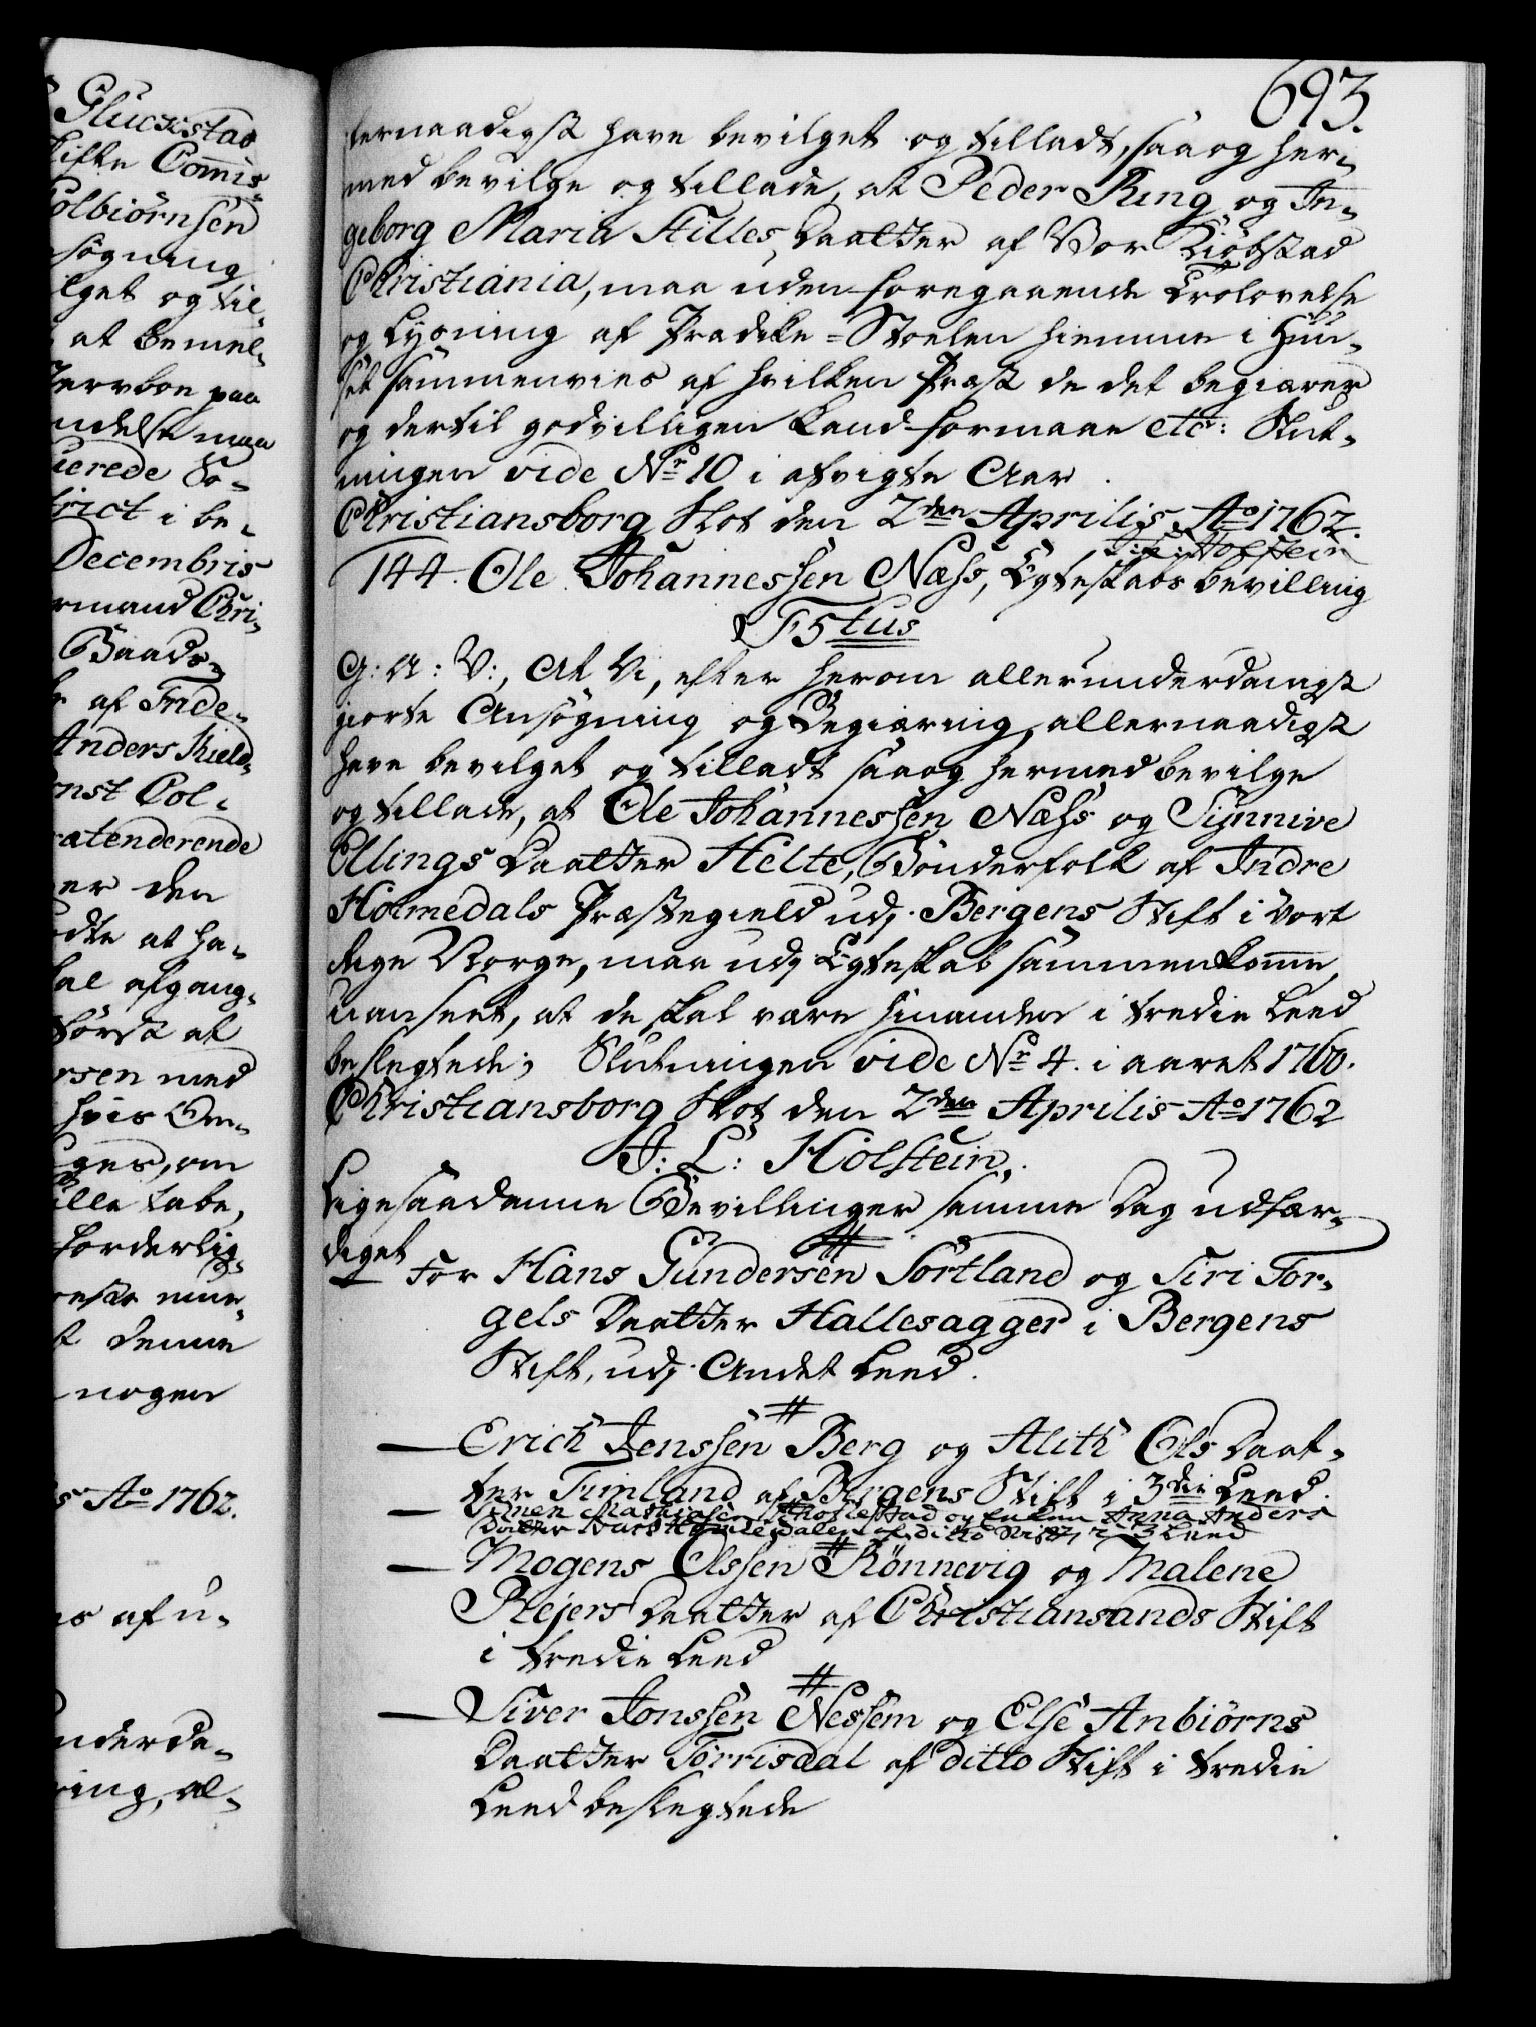 693.
lernaadigst have bevilget og tilladt, saa og her¬
med bevilge og tillade, at Peder Ring og In¬
geborg Maria Stilles Daatter af Vor Kiöbstad
Christiania, maa uden foregaaende Trolovelse
og Lysning af Prædike=Stoelen hiemme i Huu¬
set sammenvies af hvilken Præst de det begiærer
og dertil godvilligen kand formaae etc: Slut¬
ningen vide No 10 i afvigte Aar.
Christiansborg Slot den 2den Aprilis Ao 1762.
J: L: Holstein
144. Ole Johannessen Næss, Egteskabs bevilling
F 5tus
G: A: V:, At Vi, efter herom allerunderdanigst
giorte Ansögning og Begiæring, allernaadigst
have bevilget og tilladt saa og hermed bevilge
og tillade, at Ole Johannessen Næss og Sünnive
Ellings Daatter Helte, Bönderfolk af Indre
Holmedals Præstegield udj Bergens Stift i Vort
Rige Norge, maa udj Egteskab sammenkomme,
Uanseet, at de skal være hinanden i tredie Leed
beslegtede; Slutningen vide No 4. i aaret 1760.
Christiansborg Slot den 2den Aprilis Ao 1762
J: L: Holstein.
Ligesaadanne Bevillinger samme Dag udfær¬
diget
For Hans Gundersen Sortland og Siri Tor¬
gels Daatter Hallesagger i Bergens
Stift, udj Andet Leed.
— Erich Jenssen Berg og Alith Ols Daat¬
ter Timland af Bergens Stift i 3die Leed.
— Mathiasen og Enken Anna Anders
Daatter af ditto Stift, i 3 Leed
— Mogens Olssen Rönnevig og Malene
Rejers Daatter af Christiansands Stift
i tredie Leed
— Siver Jonssen Nessem og Else Anbiörns
Daatter Torrisdal af ditto Stift i tredie
Leed beslegtede